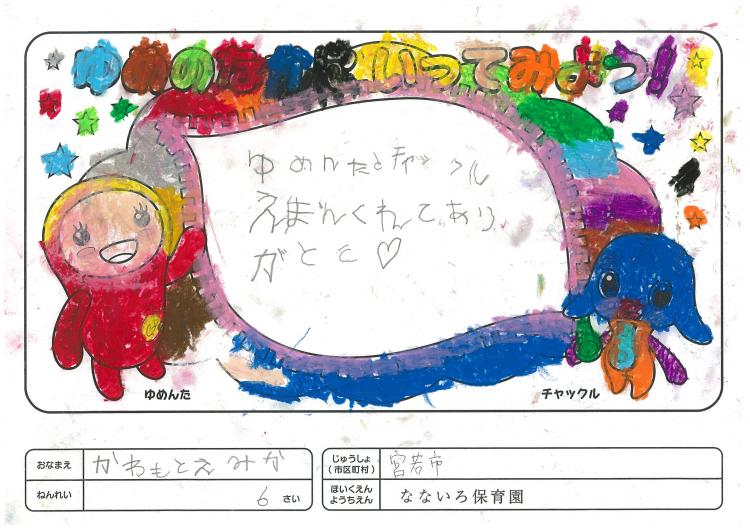 ゆめのなかにいってみよう!
ゆめんたとチャックル
えほんくれてあり
がとを♡
ゆめんた
チャックル
おなまえ かわもとえみか
ねんれい 6 さい
じゅうしょ (市区町村) 宮若市
ほいくえん ようちえん なないろ保育園